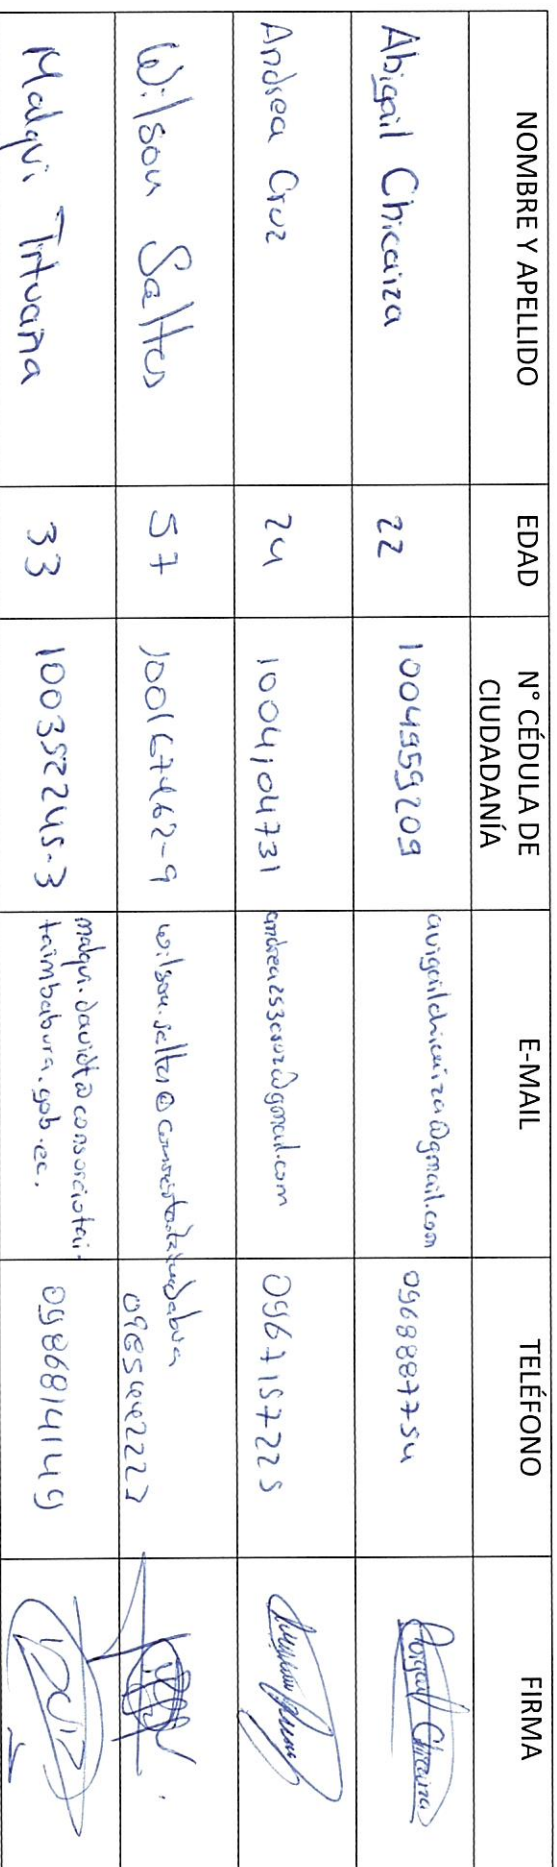 NOMBRE Y APELLIDO EDAD N° CÉDULA DE CIUDADANÍA E-MAIL TELÉFONO FIRMA
Abigail Chicaiza 22 1004959209 avigailchicaiza@gmail.com 0968887754
Andrea Cruz 24 1004104731 andrea253cruz@gmail.com 0967157225
Wilson Saltos 57 100167462-9
Malqui Tituaña 33 100352245-3 malqui.davidt@consorciotai-
taimbabura.gob.ec. 0986814149